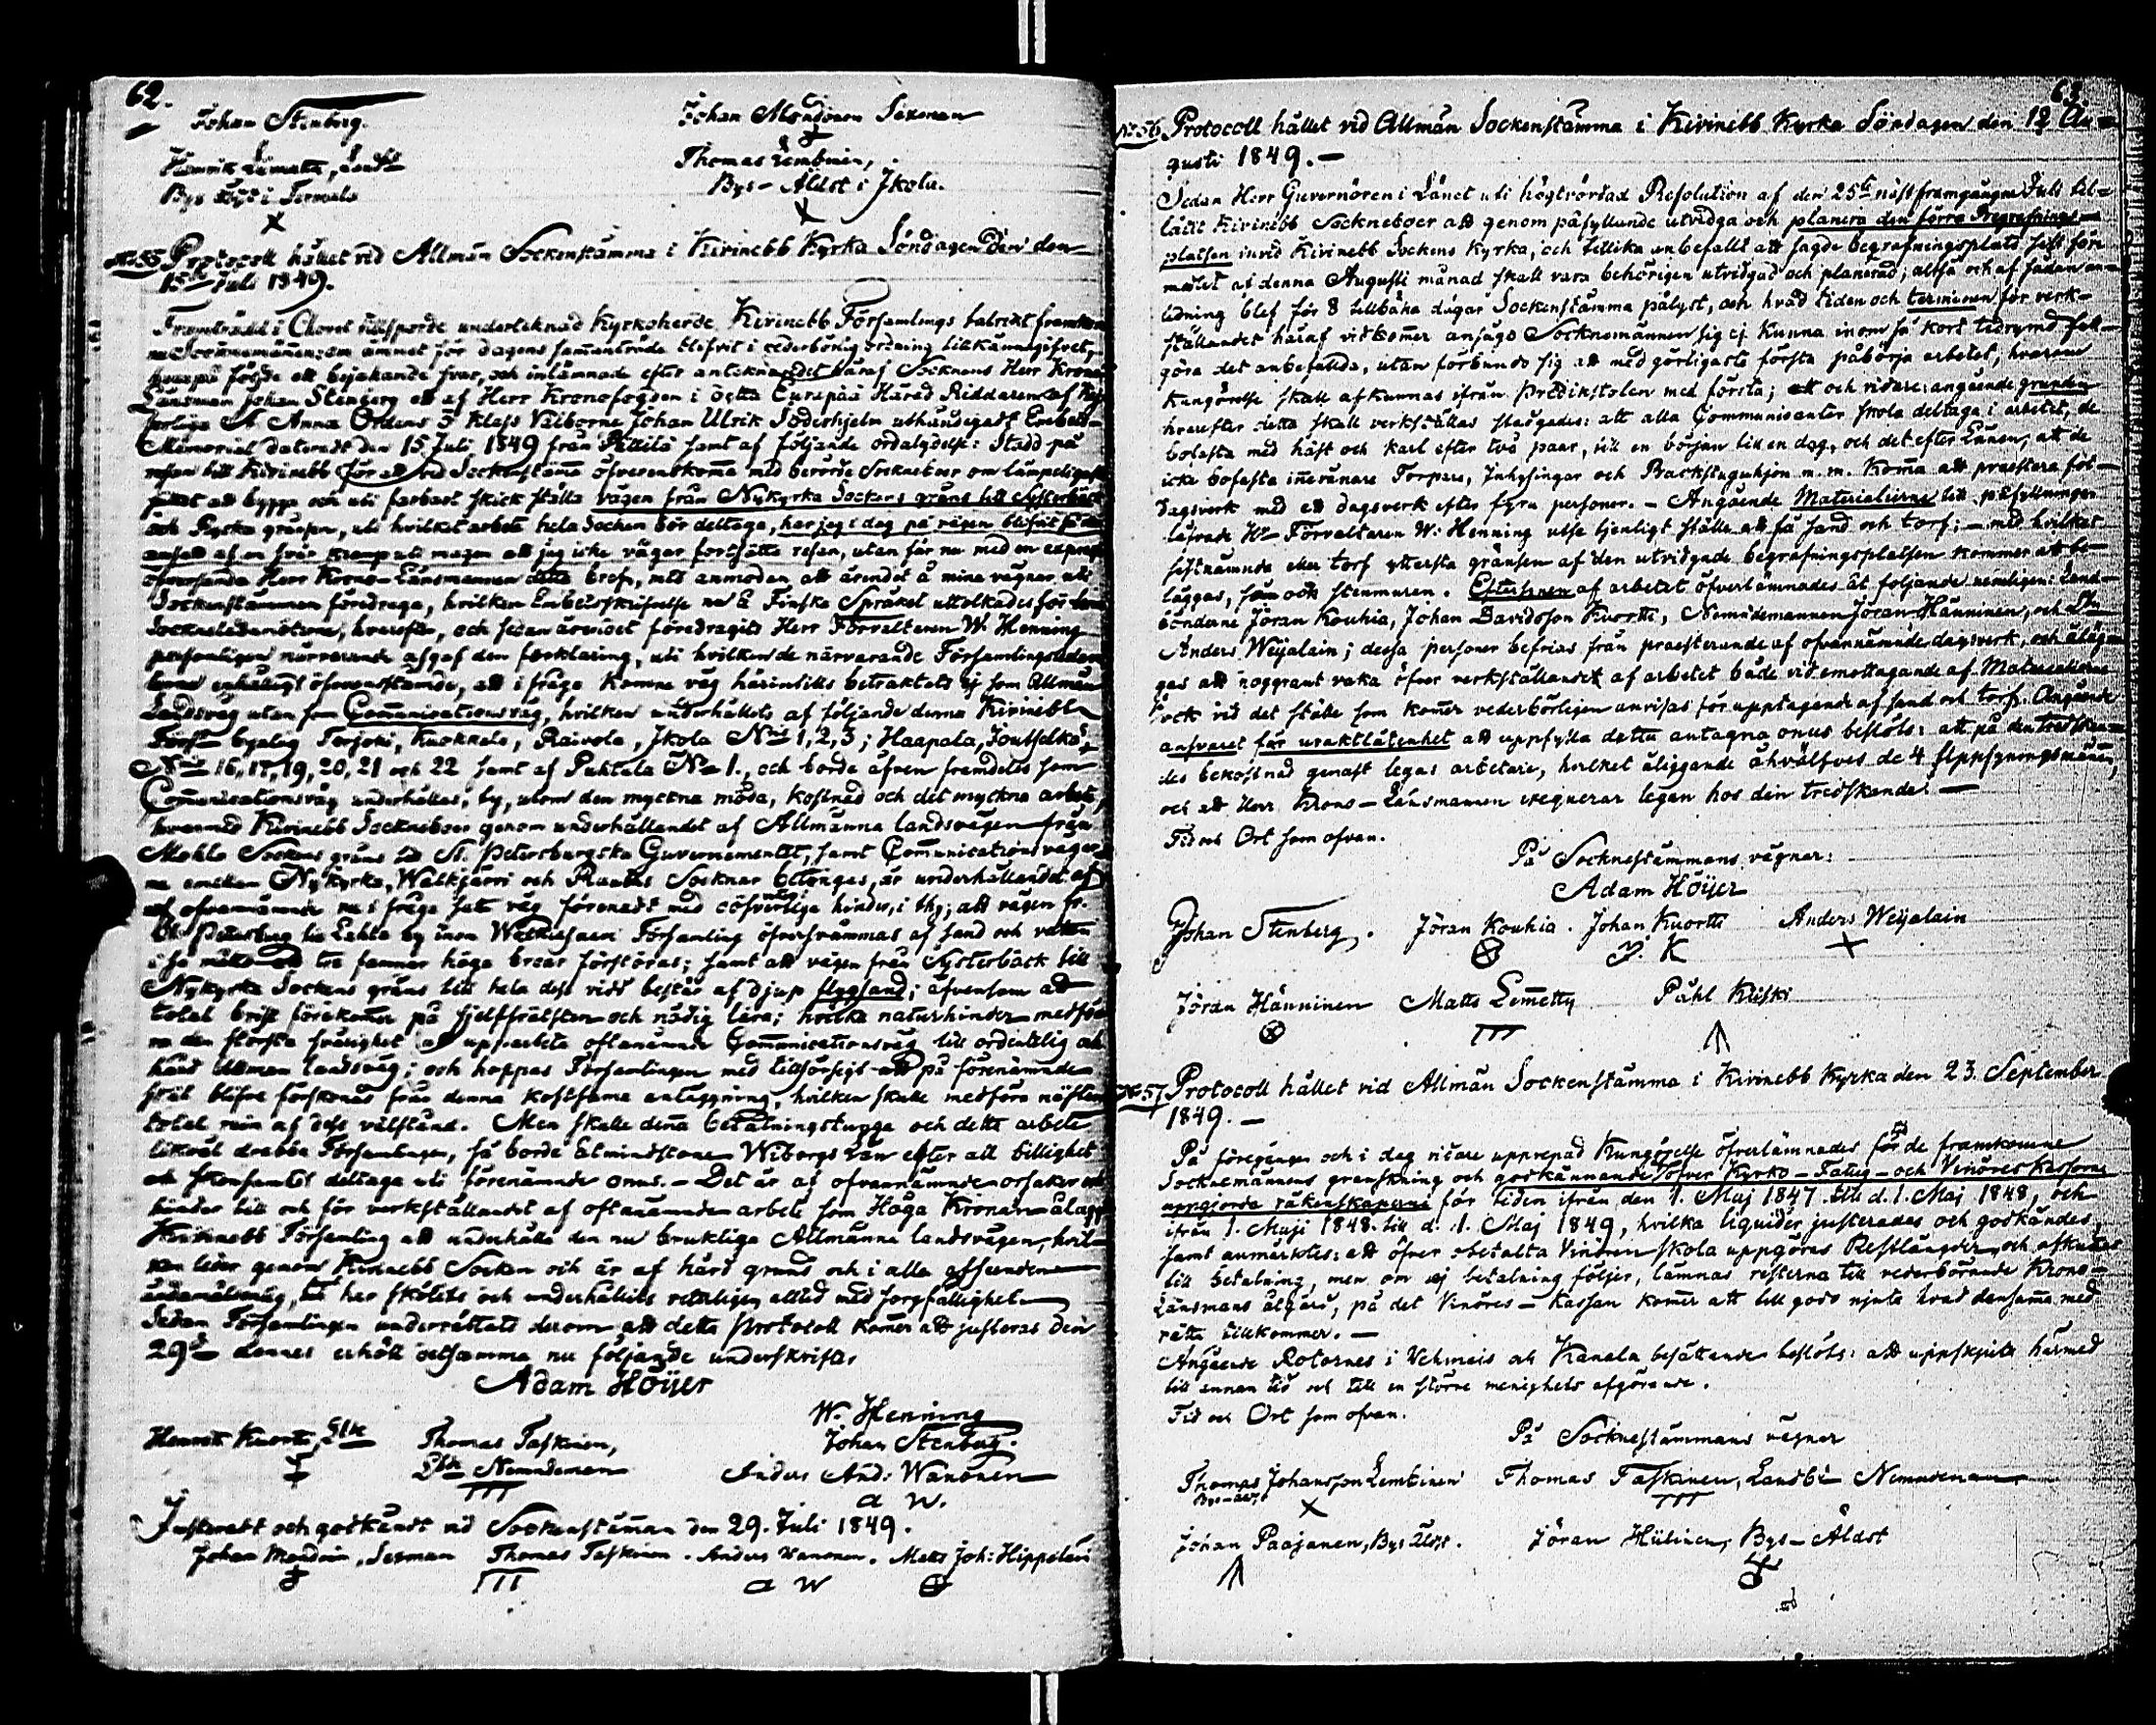 62.
Johan Stenberg. Johan Mondinen Sexman
Thomas Lembinen,
Bys-Äldst i Ikola.
No 55 Protocoll hållet vid Allmän Sockenstämma i Kivinebb Kyrka Söndagen den
15de Juli 1849.
Framträdd i Choret tillsporde undertecknad Kyrkoherde Kivinebb Församlings talrikt framkom-
ne Socknemännen: om ämnet för dagens sammanträde blifvit i vederbörlig ordning tillkännagifvet,
hvarpå följde ett bejakande svar, och inlämnade efter antecknandet häraf Socknens Herr Krono
Länsman Johan Stenberg ett af Herr Kronofogden i detta Eurepää Härad Riddaren af Kej-
serliga St Anna Ordens 3 Klass Välborne Johan Ulrik Söderhjelm utfärdadt Embets-
Memorial dateradt den 15 Juli 1849 från Pällilä samt af följande ordalydelse: Stadd på
resan till Kivinebb för att vid Sockenstämma öfverenskomma med berörde Sockneboer om lämpligaste
sättet att bygga och uti farbart skick ställa vägen från Nykyrka Sockens gräns till Systerbäck
och Ryska gränsen, uti hvilket arbete hela Socken bör deltaga, har jag i dag på vägen blifvit så
ansatt af en svår kramp uti magen att jag icke vågar fortsätta resan, utan får nu med en express
öfversända Herr Krono-Länsmannen detta bref, med anmodan att ärendet å mina vägnar uti
Sockenstämman föredraga, hvilken Embetsskrifvelse på Finska Språket uttolkades för
Sockneledamöterne, hvarefter, och sedan ärendet föredragits Herr Förvaltaren W. Henning
personligen närvarande afgaf den förklaring, uti hvilken de närvarande Församlingsledam
enhälligt öfverensstämde, att i fråga komne väg härintills betraktats ej som Allmän
Landsväg utan som Communicationsväg, hvilken underhållets af följande denna Kivinebb
Förs byelag Terjoki, Kuokkala, Raivola, Ikola Nris 1, 2, 3; Haapala, Joutselkä,
Nris 16, 17, 19, 20, 21 och 22 samt af Puhtula No 1., och borde äfven framdeles som
Communicationsväg underhållas, ty, utom den myckna möda, kostnad och det myckna arbete,
hvarmed Kivinebb Sockneboer genom underhållandet af Allmänna landsvägen från
Mohla Sockens gräns till St. Petersburgska Guvernementet, samt Communicationsvägar-
ne emellan Nykyrka, Walkjärvi och Rautus Socknar betungas, är underhållandet af
af ofvannämnde nu i fråga satt väg förenadt med oöfvervinnerliga hinder, i thy; att vägen fr.
St. Petersburg till Lahta by inom Walkiasaari Församling öfversvämmas af sand och vatten
i så måtto att tre famnar höga broar förstöras; samt att vägen från Systerbäck till
Nykyrka Sockens gräns till hela dess vidd består af djup flygsand; äfvensom att
total brist förekommer på fjellfrälsten och nödig lera; hvilka naturhinder medföra
den största svårighet att upparbeta oftanämnde Communicationsväg till ordentelig och
hård Allmän landsväg; och hoppas Församlingen med tillförsigt att på förenämnde
skäl blifva förskonad från denna kostsamma anläggning, hvilken skulle medföra nästan
total ruin af dess välstånd. Men skulle denna betalningstunga och detta arbete
likväl drabba Församlingen, så borde åtminstone Wiborgs Län efter all billighet
och skonsamhet deltaga uti förenämnde onus. - Det är af ofvannämnde orsaker och
hinder till och för verkställandet af oftanämnde arbete som Höga Kronan ålagt
Kivinebb Församling att underhålla den nu brukliga Allmänna landsvägen, hvil-
ken löper genom Kivinebb Socken och är af hård grund och i alla afseenden
ändamålsenlig, och har skötts och underhållits veterligen alltid med sorgfällighet.
Sedan Församlingen underrättats derom att detta Protocoll kommer att justeras den
29de dennes erhöll detsamma nu följande underskrifter
Adam Höijer
W. Henning
Henrik Kuortti, Thomas Taskinen, Johan Stenberg.
Nemndeman Anders And: Wanonen
III A W.
Justeradt och godkändt vid Sockenstämman den 29. Juli 1849.
Johan Mondinen, Sexman Thomas Taskinen. Anders Wanonen. Matts Joh: Hippeläin
III A W
63.
No 56. Protocoll hållet vid Allmän Sockenstämma i Kivinebb Kyrka Söndagen den 12 Au-
gusti 1849. -
Sedan Herr Guvernören i Länet uti högtvördad Resolution af den 25te nästframgångne Juli til-
låtit Kivinebb Sockneboer att genom påfyllande utvidga och planera den förra Begrafnings-
platsen invid Kivinebb Sockens Kyrka, och tillika anbefallt att sagde begrafningsplats sist före
medlet af denna Augusti månad skall vara behörigen utvidgad och planerad; altså och af sådan an-
ledning blef för 8 tillbaka dagar Sockenstämma pålyst, och hvad tiden och terminen för verk-
ställandet häraf vidkommer ansågo Socknemännen sig ej kunna inom så kort tidrymd full-
göra det anbefallda, utan förbundo sig att med görligaste första påbörja arbetet, hvarom
kungörelse skall afkunnas ifrån Predikstolen med första; och vidare: angående grunden
hvarefter detta skall verkställas stadgades: att alla Communicanter skola deltaga i arbetet, de
bofasta med häst och karl efter två paar, till en början till en dag, och det efter Länen, att de
icke bofasta innevånare Torpare, Inhysingar och Backstuguhjon m. m. komma att praestera fot-
dagsverk med ett dagsverk efter fyra personer. - Angående Materialierne till påfyllningen
låfvade Hr Förvaltaren W. Henning utse tjenligt ställe att få sand och torf; - med hvilket
sistnämnde eller torf yttersta gränsen af den utvidgade begrafningsplatsen kommer att be-
läggas, som och stenmuren. Eftersynen af arbetet öfverlämnades åt följande nemligen: Land-
bönderne Jöran Kouhia, Johan Davidsson Kuortti, Nemndemannen Jöran Hänninen, och
Anders Weijalain; dessa personer befrias från praesterande af ofvannämnde dagsverk, och åläg-
gas att noggrant vaka öfver verkställandet af arbetet både vid emottagande af Materialierne
ock vid det ställe som kommer vederbörligen anvisas för upptagande af sand och torf. Angående
ansvaret för uraktlåtenhet att uppfylla detta antagna onus beslöts: att på den tredsken-
des bekostnad genast legas arbetare, hvilket åliggande åhvälfves de 4 uppsyningsmännen,
och att Herr Krono-Länsmannen exequerar legan hos den tredskande. -
Tid och Ort som ofvan.
På Sockenstämmans vägnar:
Adam Höijer
Johan Stenberg. Jöran Kouhia. Johan Kuortti Anders Weijalain
J. K
Jöran Hänninen Matts Lemetty Påhl Kliski
III
No 57. Protocoll hållet vid Allmän Sockenstämma i Kivinebb Kyrka den 23. September
1849. -
På föregången och i dag vidare upprepad Kungörelse öfverlämnades för de framkomne
Socknemännens granskning och godkännande öfver Kyrko-Fattig- och Vinöres Kassorne
uppgjorda räkenskaperne för tiden ifrån den 1. Maj 1847 till d. 1. Maj 1848, och
ifrån 1. Maji 1848 till d. 1. Maj 1849, hvilka liquider justerades och godkändes,
samt anmärktes: att öfver obetalta Vinören skola uppgöras Restlängder, och
till betalning, men om ej betalning följer, lämnas resterna till vederbörande Krono-
Länsmans åtgärd, på det Vinöres-Kassan kommer att till godo njuta hvad densamma med
rätta tillkommer. -
Angående Rotornes i Vehmais och Kanala besättande beslöts: att uppskjuta härmed
till annan tid och till en större menighets afgörande.
Tid och Ort som ofvan.
På Socknestämmans vägnar
Thomas Johansson Lembinen Thomas Taskinen, Landb: Nemndeman
Bys-äldst III
Johan Paajanen, Bys Äldst. Jöran Hülinen, Bys-Äldst